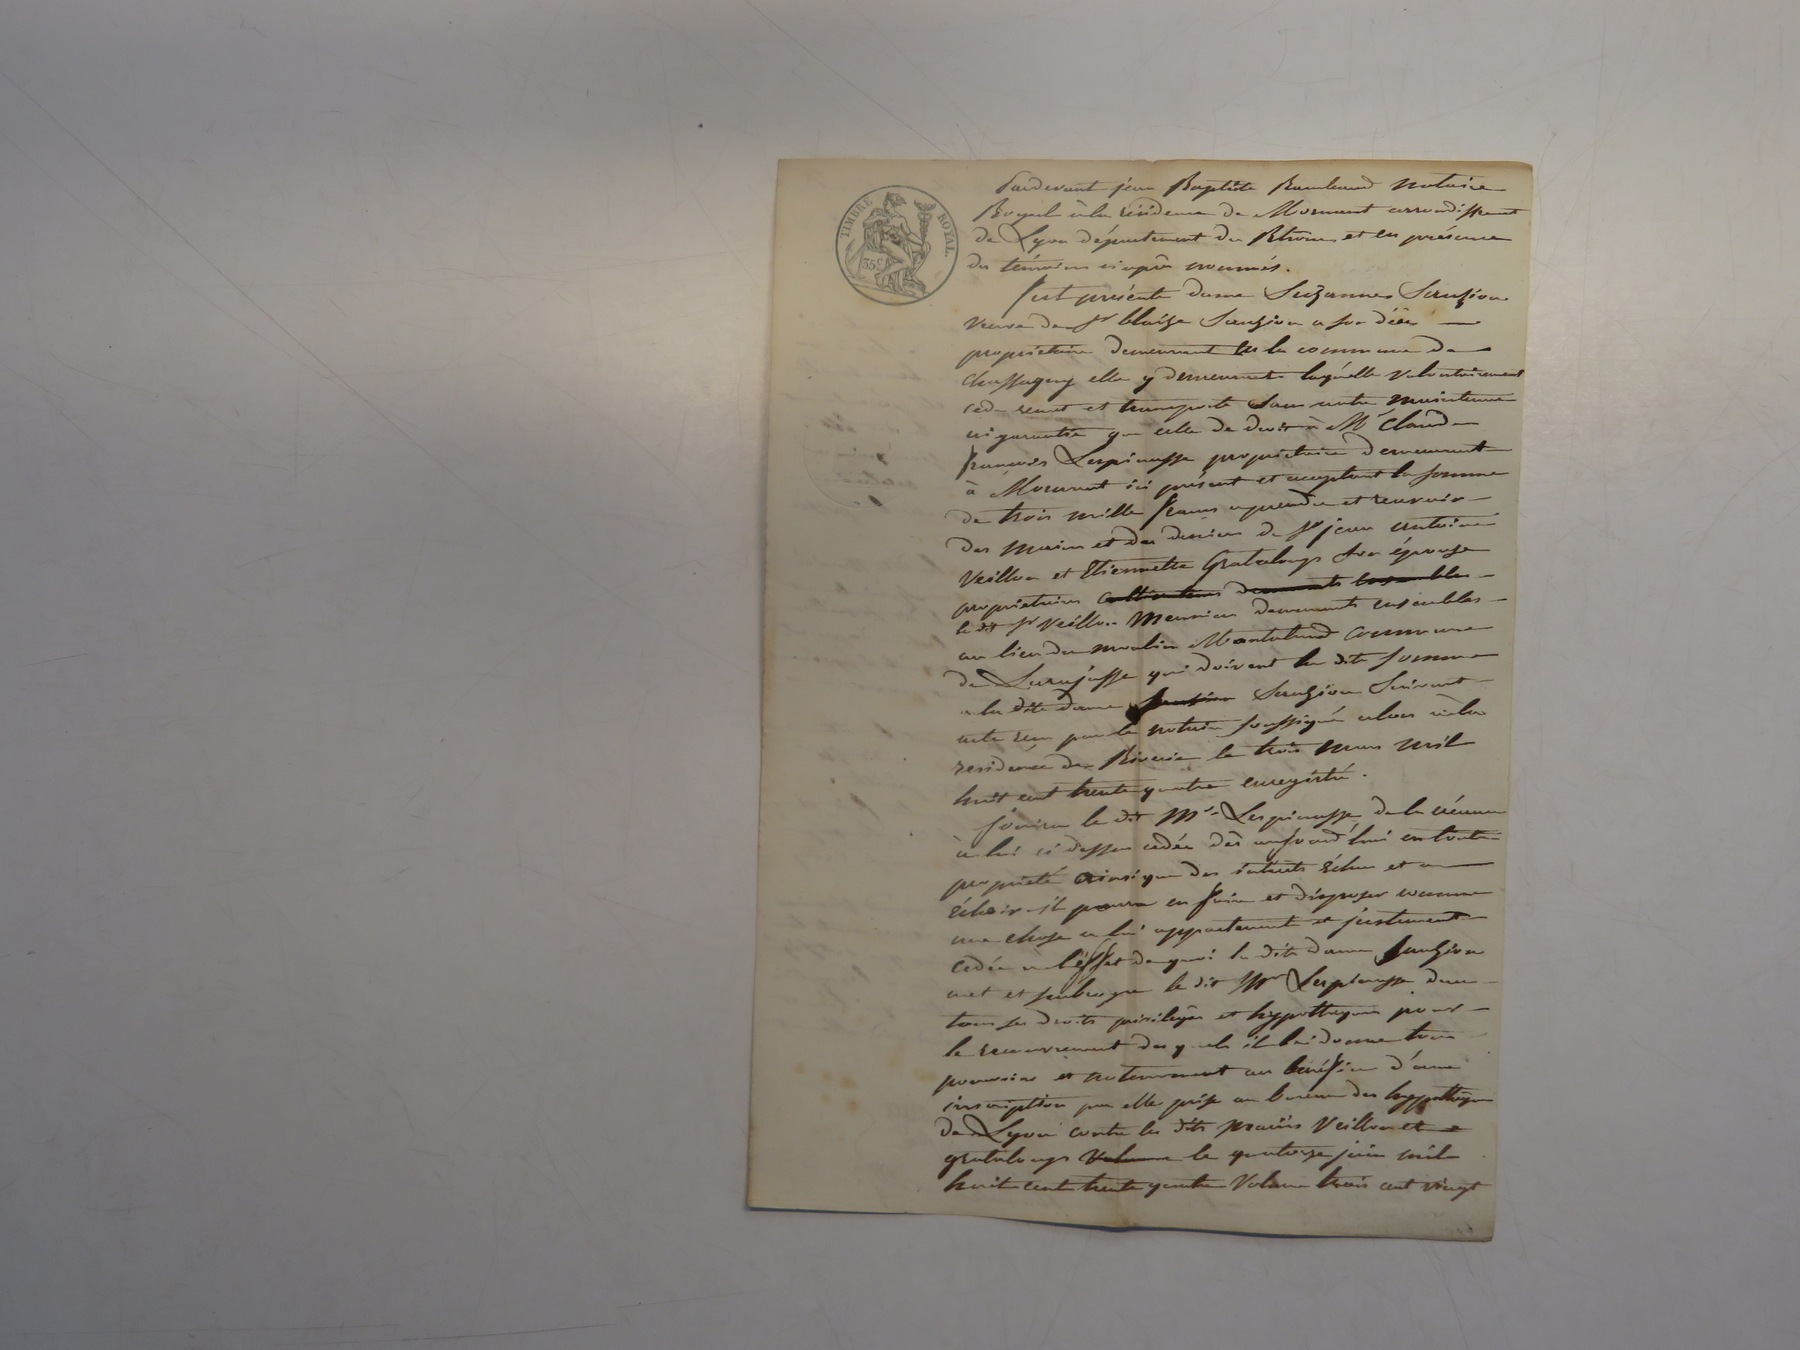 TIMBRE ROYAL
35c
Pardevant jean Baptiste Rambaud notaire
Royal à la résidence de Mornant arrondissement
de Lyon département du Rhône et en présence
des témoins ci après nommés.
Fut présente dame Suzanne Sauzion
veuve de Sr blaize Sauzion a son décès
propriétaire demeurant en la commune de
Chassagny elle y demeurante laquelle volontairement
cède remet et transporte sans autre maintenue
ni garantie que celle de droit à Mr Claude
françois Lespinasse propriétaire demeurant
à Mornant ici présent et acceptant la somme
de trois mille francs a prendre et recevoir
des mains et des deniers de Sr jean antoine
Veillon et Etiennette Grataloup son épouse
propriétaires cultivateurs demeurants ensembles
le dit Sr Veillon Meunier demeurants ensembles
au lieu du moulin commune
de Larajasse qui doivent la dite somme
a la dite dame Sauzion Suivant
acte reçu par le notaire soussigné alors à la
résidence de Riverie le trois mars mil
huit cent trente quatre enregistré.
Jouira le dit Mr Lespinasse de la créance
à lui ci dessus cédée dès aujourd'hui en toute
propriété ainsi que des intérêts échus et a
échoir il pourra en faire et disposer comme
une chose a lui appartenant et justement
cédée a l'effet de quoi la dite dame Sauzion
met et subroge le dit Mr Lespinasse dans
tous ses droits privilèges et hypothèques pour
le recouvrement des quels il lui donne tous
pouvoirs et notamment au bénéfice d'une
inscription par elle prise au bureau des hypothèques
de Lyon contre les dits mariés Veillon et
grataloup Volume le quatorze juin mil
huit cent trente quatre Volume trois cent vingt